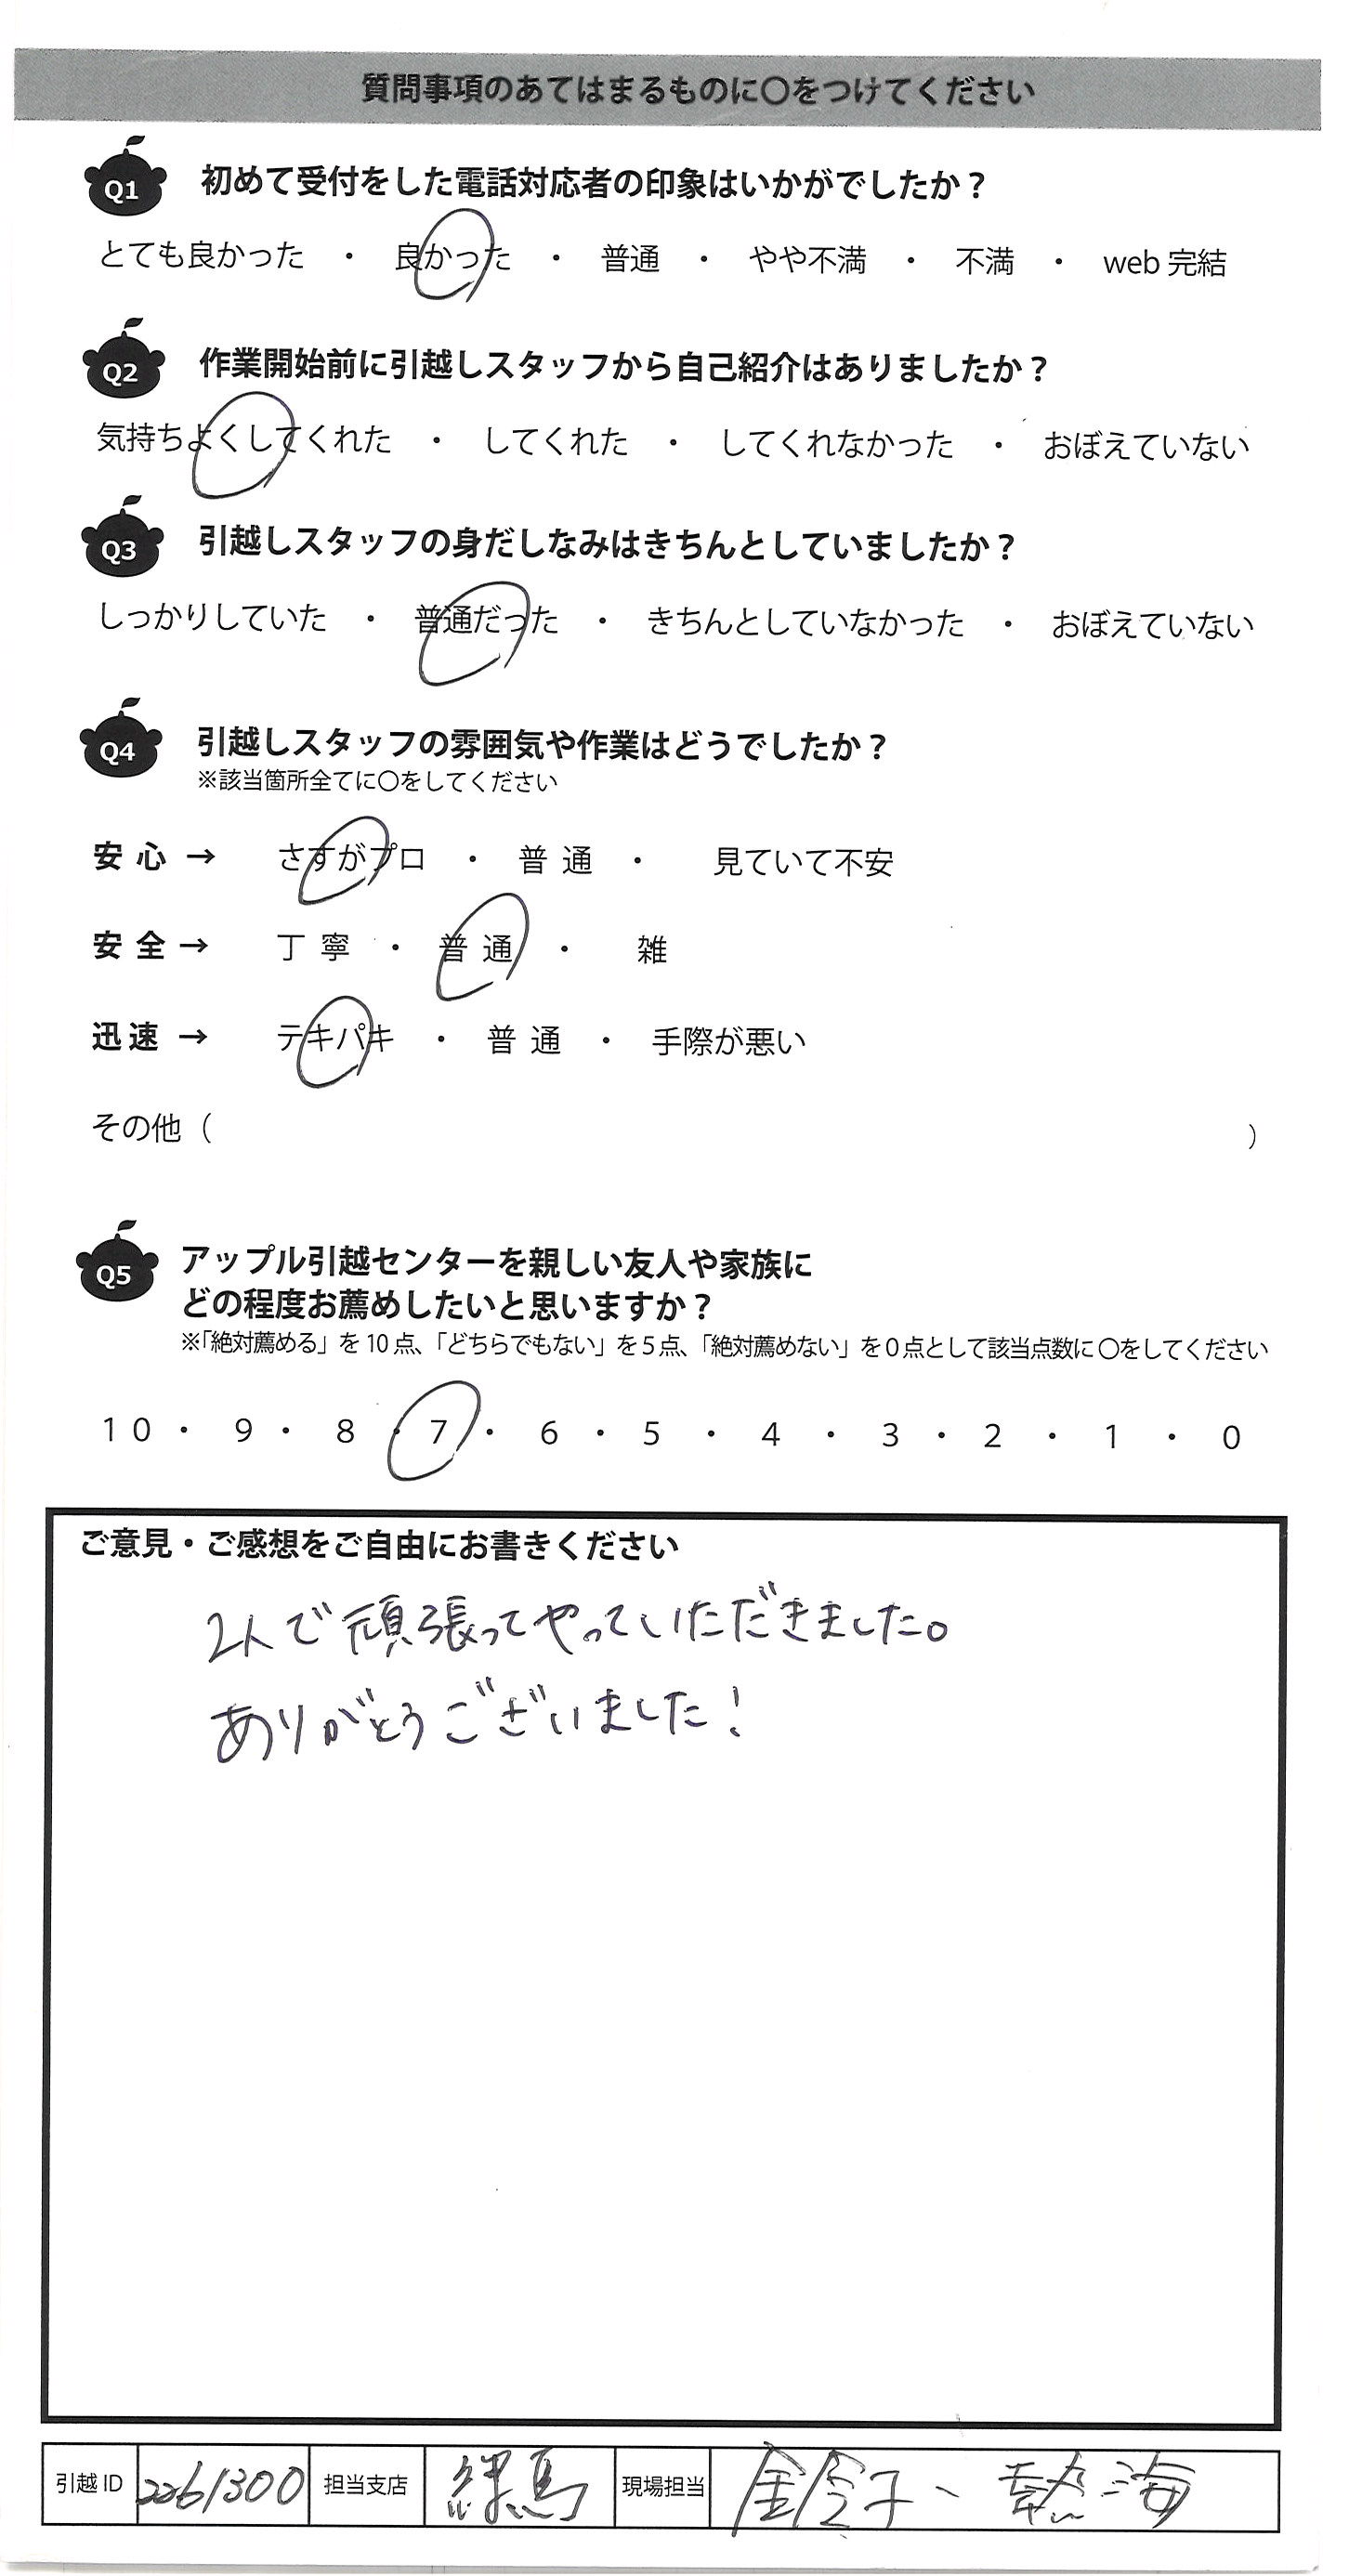 質問事項のあてはまるものに〇をつけてください
Q1 初めて受付をした電話対応者の印象はいかがでしたか？
とても良かった ・ 良かった ・ 普通 ・ やや不満 ・ 不満 ・ web 完結
Q2 作業開始前に引越しスタッフから自己紹介はありましたか？
気持ちよくしてくれた ・ してくれた ・ してくれなかった ・ おぼえていない
Q3 引越しスタッフの身だしなみはきちんとしていましたか？
しっかりしていた ・ 普通だった ・ きちんとしていなかった ・ おぼえていない
Q4 引越しスタッフの雰囲気や作業はどうでしたか？
※該当箇所全てに〇をしてください
安心 → さすがプロ ・ 普通 ・ 見ていて不安
安全 → 丁寧 ・ 普通 ・ 雑
迅速 → テキパキ ・ 普通 ・ 手際が悪い
その他（ ）
Q5 アップル引越センターを親しい友人や家族に
どの程度お薦めしたいと思いますか？
※「絶対薦める」を10点、「どちらでもない」を5点、「絶対薦めない」を0点として該当点数に〇をしてください
10 ・ 9 ・ 8 ・ 7 ・ 6 ・ 5 ・ 4 ・ 3 ・ 2 ・ 1 ・ 0
ご意見・ご感想をご自由にお書きください
2人で頑張ってやっていただきました。
ありがとうございました！
引越ID 2261300 担当支店 練馬 現場担当 熱海